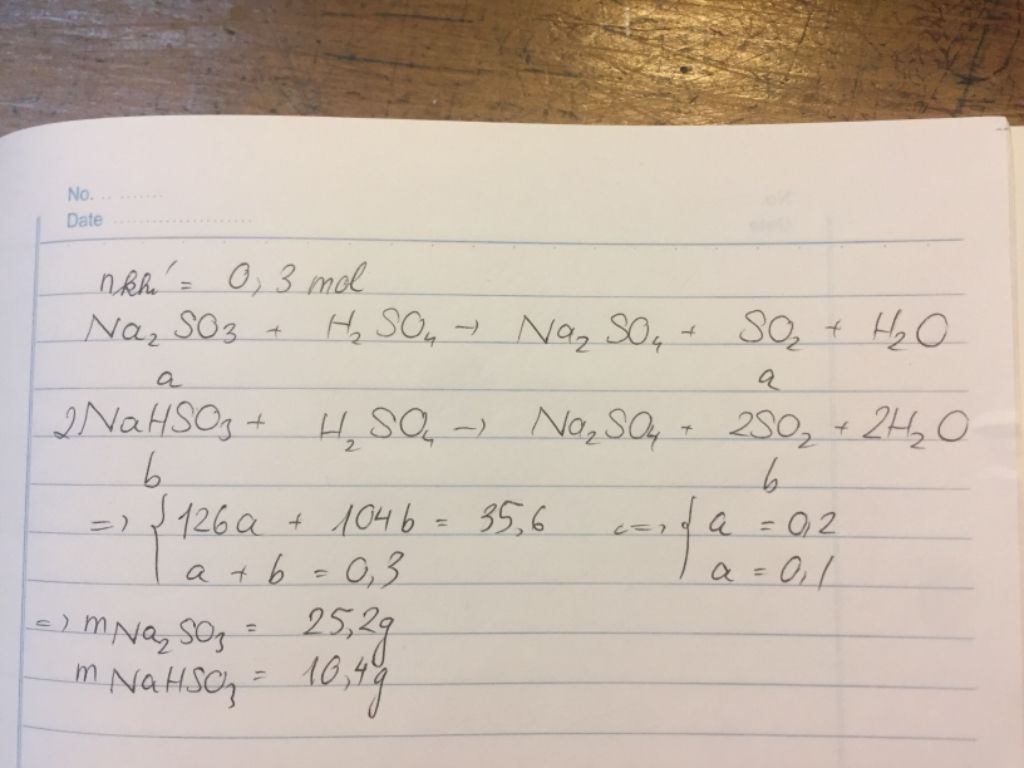 No. .. ........
Date ......................
nkhí = 0,3 mol
Na₂SO3 + H₂SO₄ → Na₂SO₄ + SO₂ + H₂O
a a
2NaHSO₃ + H₂SO₄ → Na₂SO₄ + 2SO₂ + 2H₂O
b b
=> { 126a + 104b = 35,6 <=> { a = 0,2
a + b = 0,3 a = 0,1
=> mNa₂SO₃ = 25,2g
mNaHSO₃ = 10,4g